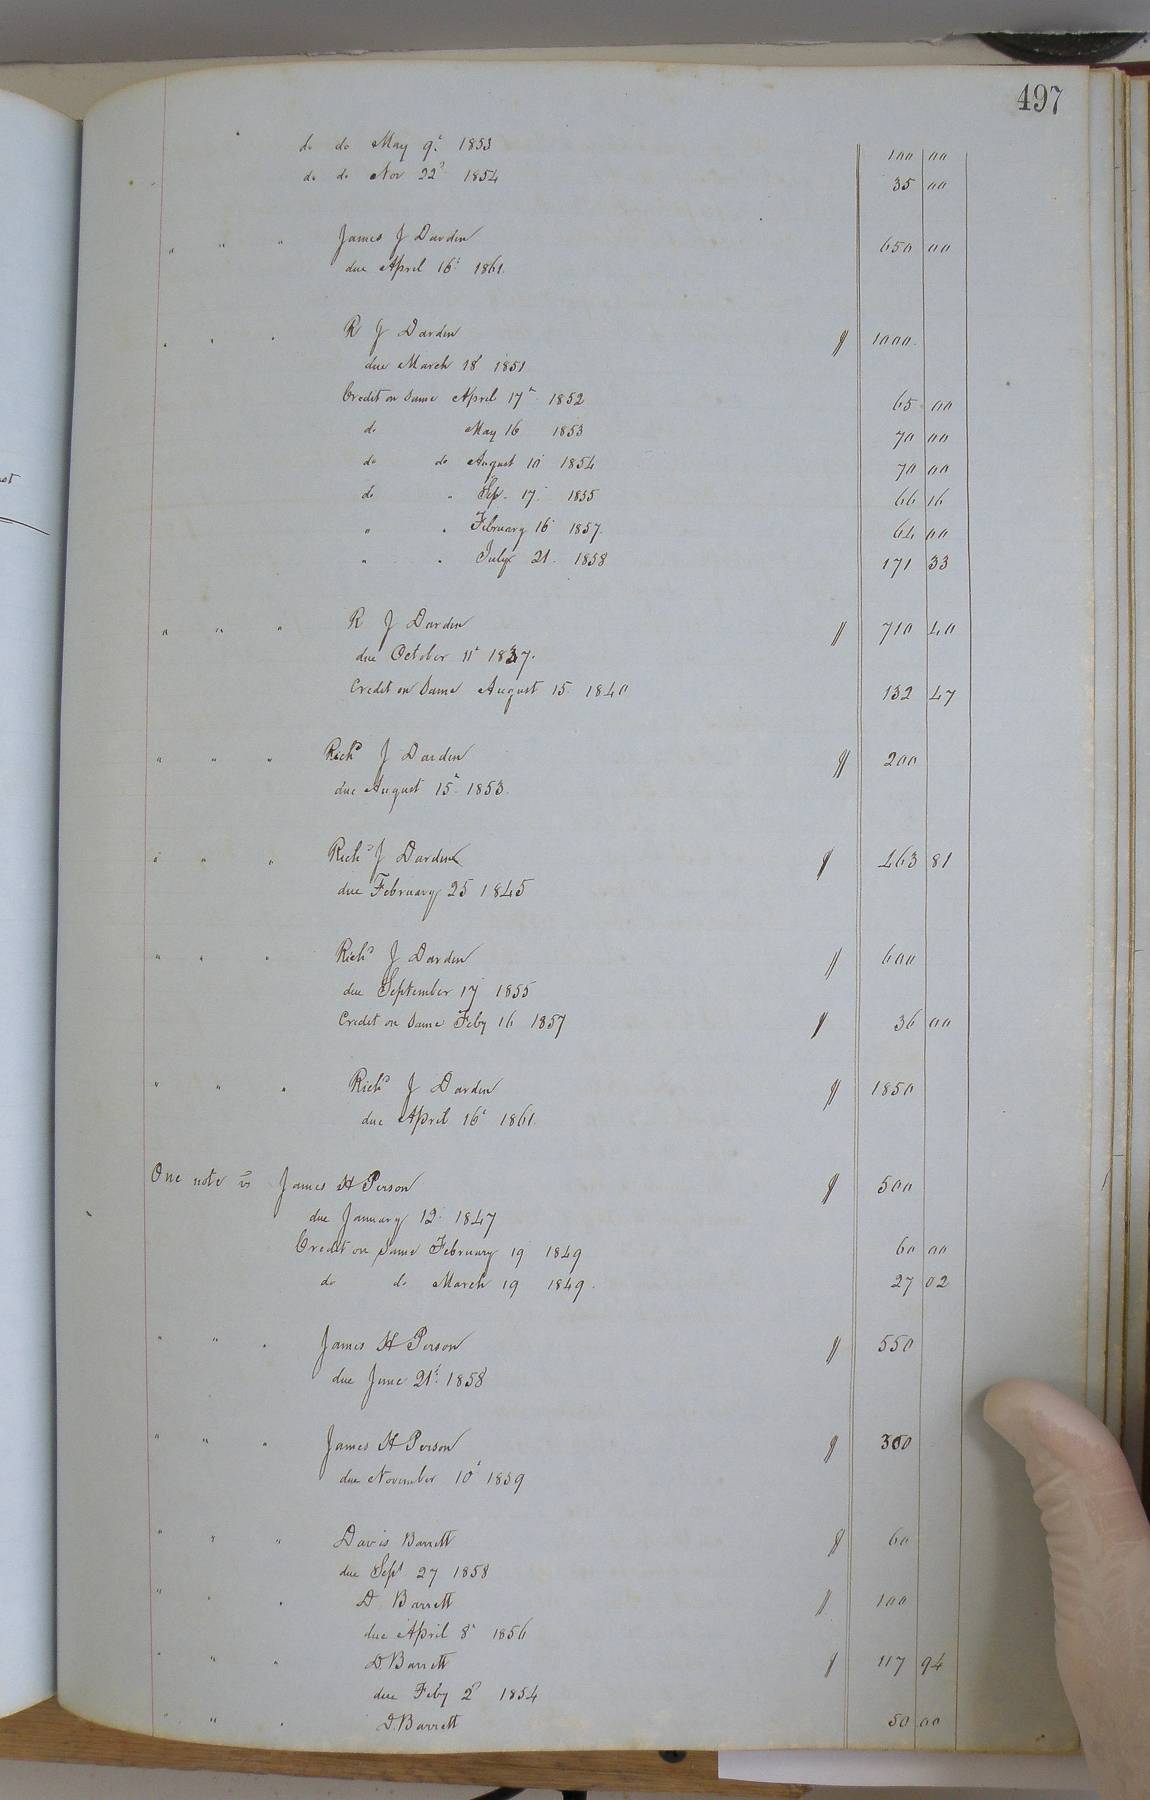 497
do do May 9th 1853 100 00
do do Nov 22d 1854 35 00
" " " James J Darden 650 00
due April 16th 1861.
" " " R J Darden $ 1000.
due March 18 1851
Credit on Same April 17th 1852 65 00
do May 16 1853 70 00
do do August 10 1854 70 00
do " Sep. 17 1855 66 16
" " February 16 1857. 64 00
" " July 21. 1858 171 33
" " " R J Darden $ 710 40
due October 11th 1837.
Credit on Same August 15 1840 132 47
" " " Richd J Darden $ 200
due August 15th 1853.
" " " Richd J Darden $ 463 81
due February 25 1845
" " " Richd J Darden $ 600
due September 17 1855
Credit on Same Feby 16 1857 $ 36 00
" " " Richd J Darden $ 1850
due April 16th 1861.
One note vs James H Person $ 500
due January 12. 1847
Credit on Same February 19 1849 60 00
do do March 19 1849. 27 02
" " " James H Person $ 550
due June 21st 1858
" " " James H Person $ 300
due November 10th 1859
" " " Davis Barrett $ 60
due Sept 27 1858
" " " D. Barrett $ 100
due April 8th 1856
" " " D. Barrett $ 117 94
due Feby 2d 1854
" " " D. Barrett 50 00